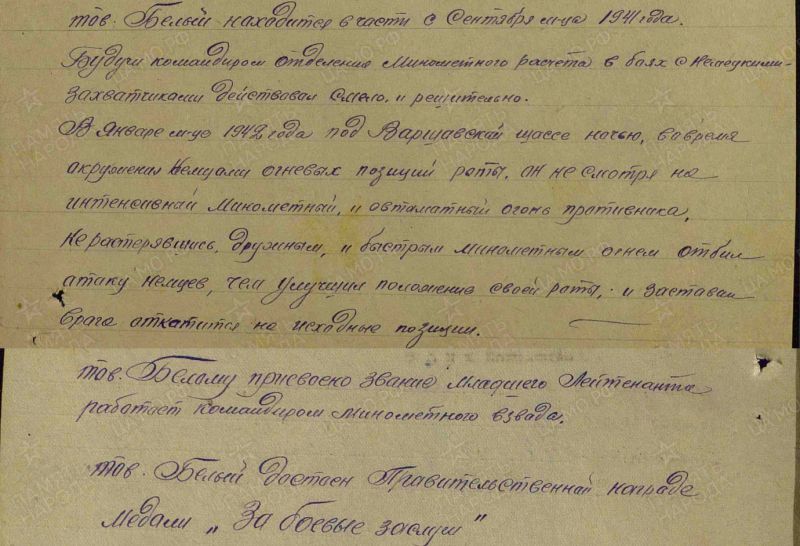 тов. Белый находится в части с Сентября м-ца 1941 года.
Будучи командиром отделения Минометного расчета в боях с Немецкими-
захватчиками действовал Смело, и решительно.
В Январе м-це 1942 года под Варшавской шассе ночью, вовремя
акружения Немцами огневых позиций роты, он не смотря на
интенсивный Минометный, и автоматный огонь противника,
Не растерявшись, дружным, и быстрым минометным огнем отбил
атаку немцев, чем улучшил положение своей роты, и заставил
врага откатится на исходные позиции.
тов. Белому присвоено звание Младшего Лейтенанта
работает командиром минометного взвода.
тов. Белый достоен Правительственной награде
медали „За боевые заслуги"